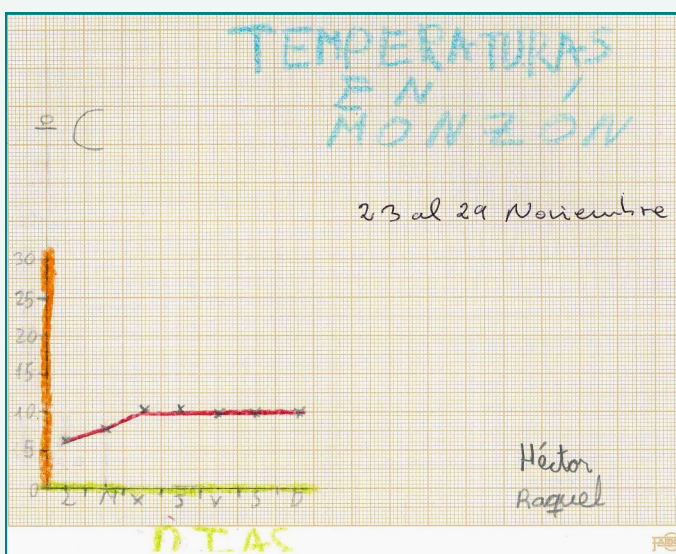 TEMPERATURAS
EN
MONZÓN
º C
23 al 29 Noviembre
30
25
20
15
10
5
0
L M X J V S D
DIAS
Héctor
Raquel